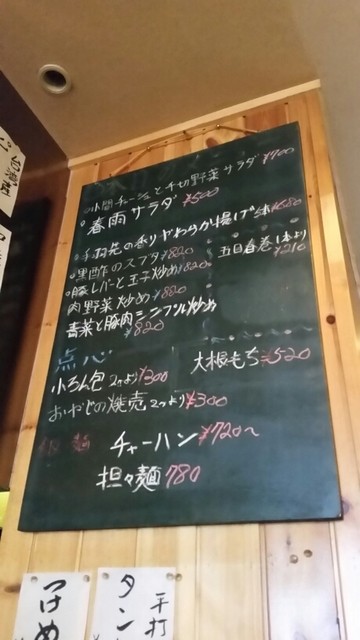 台湾産
チーズと千切野菜サラダ ¥700
春雨サラダ ¥500
の香りやわらか揚げ ¥680
黒酢のスブタ ¥820
五目春巻1本より ¥210
豚レバーと玉子炒め ¥820
肉野菜炒め ¥820
青菜と豚肉シンプル炒め ¥820
点心
小ろん包 2ヶより ¥300
大根もち ¥520
の焼売 2ヶより ¥300
麺
チャーハン ¥720〜
担々麺 780
つけめ
タン
手打